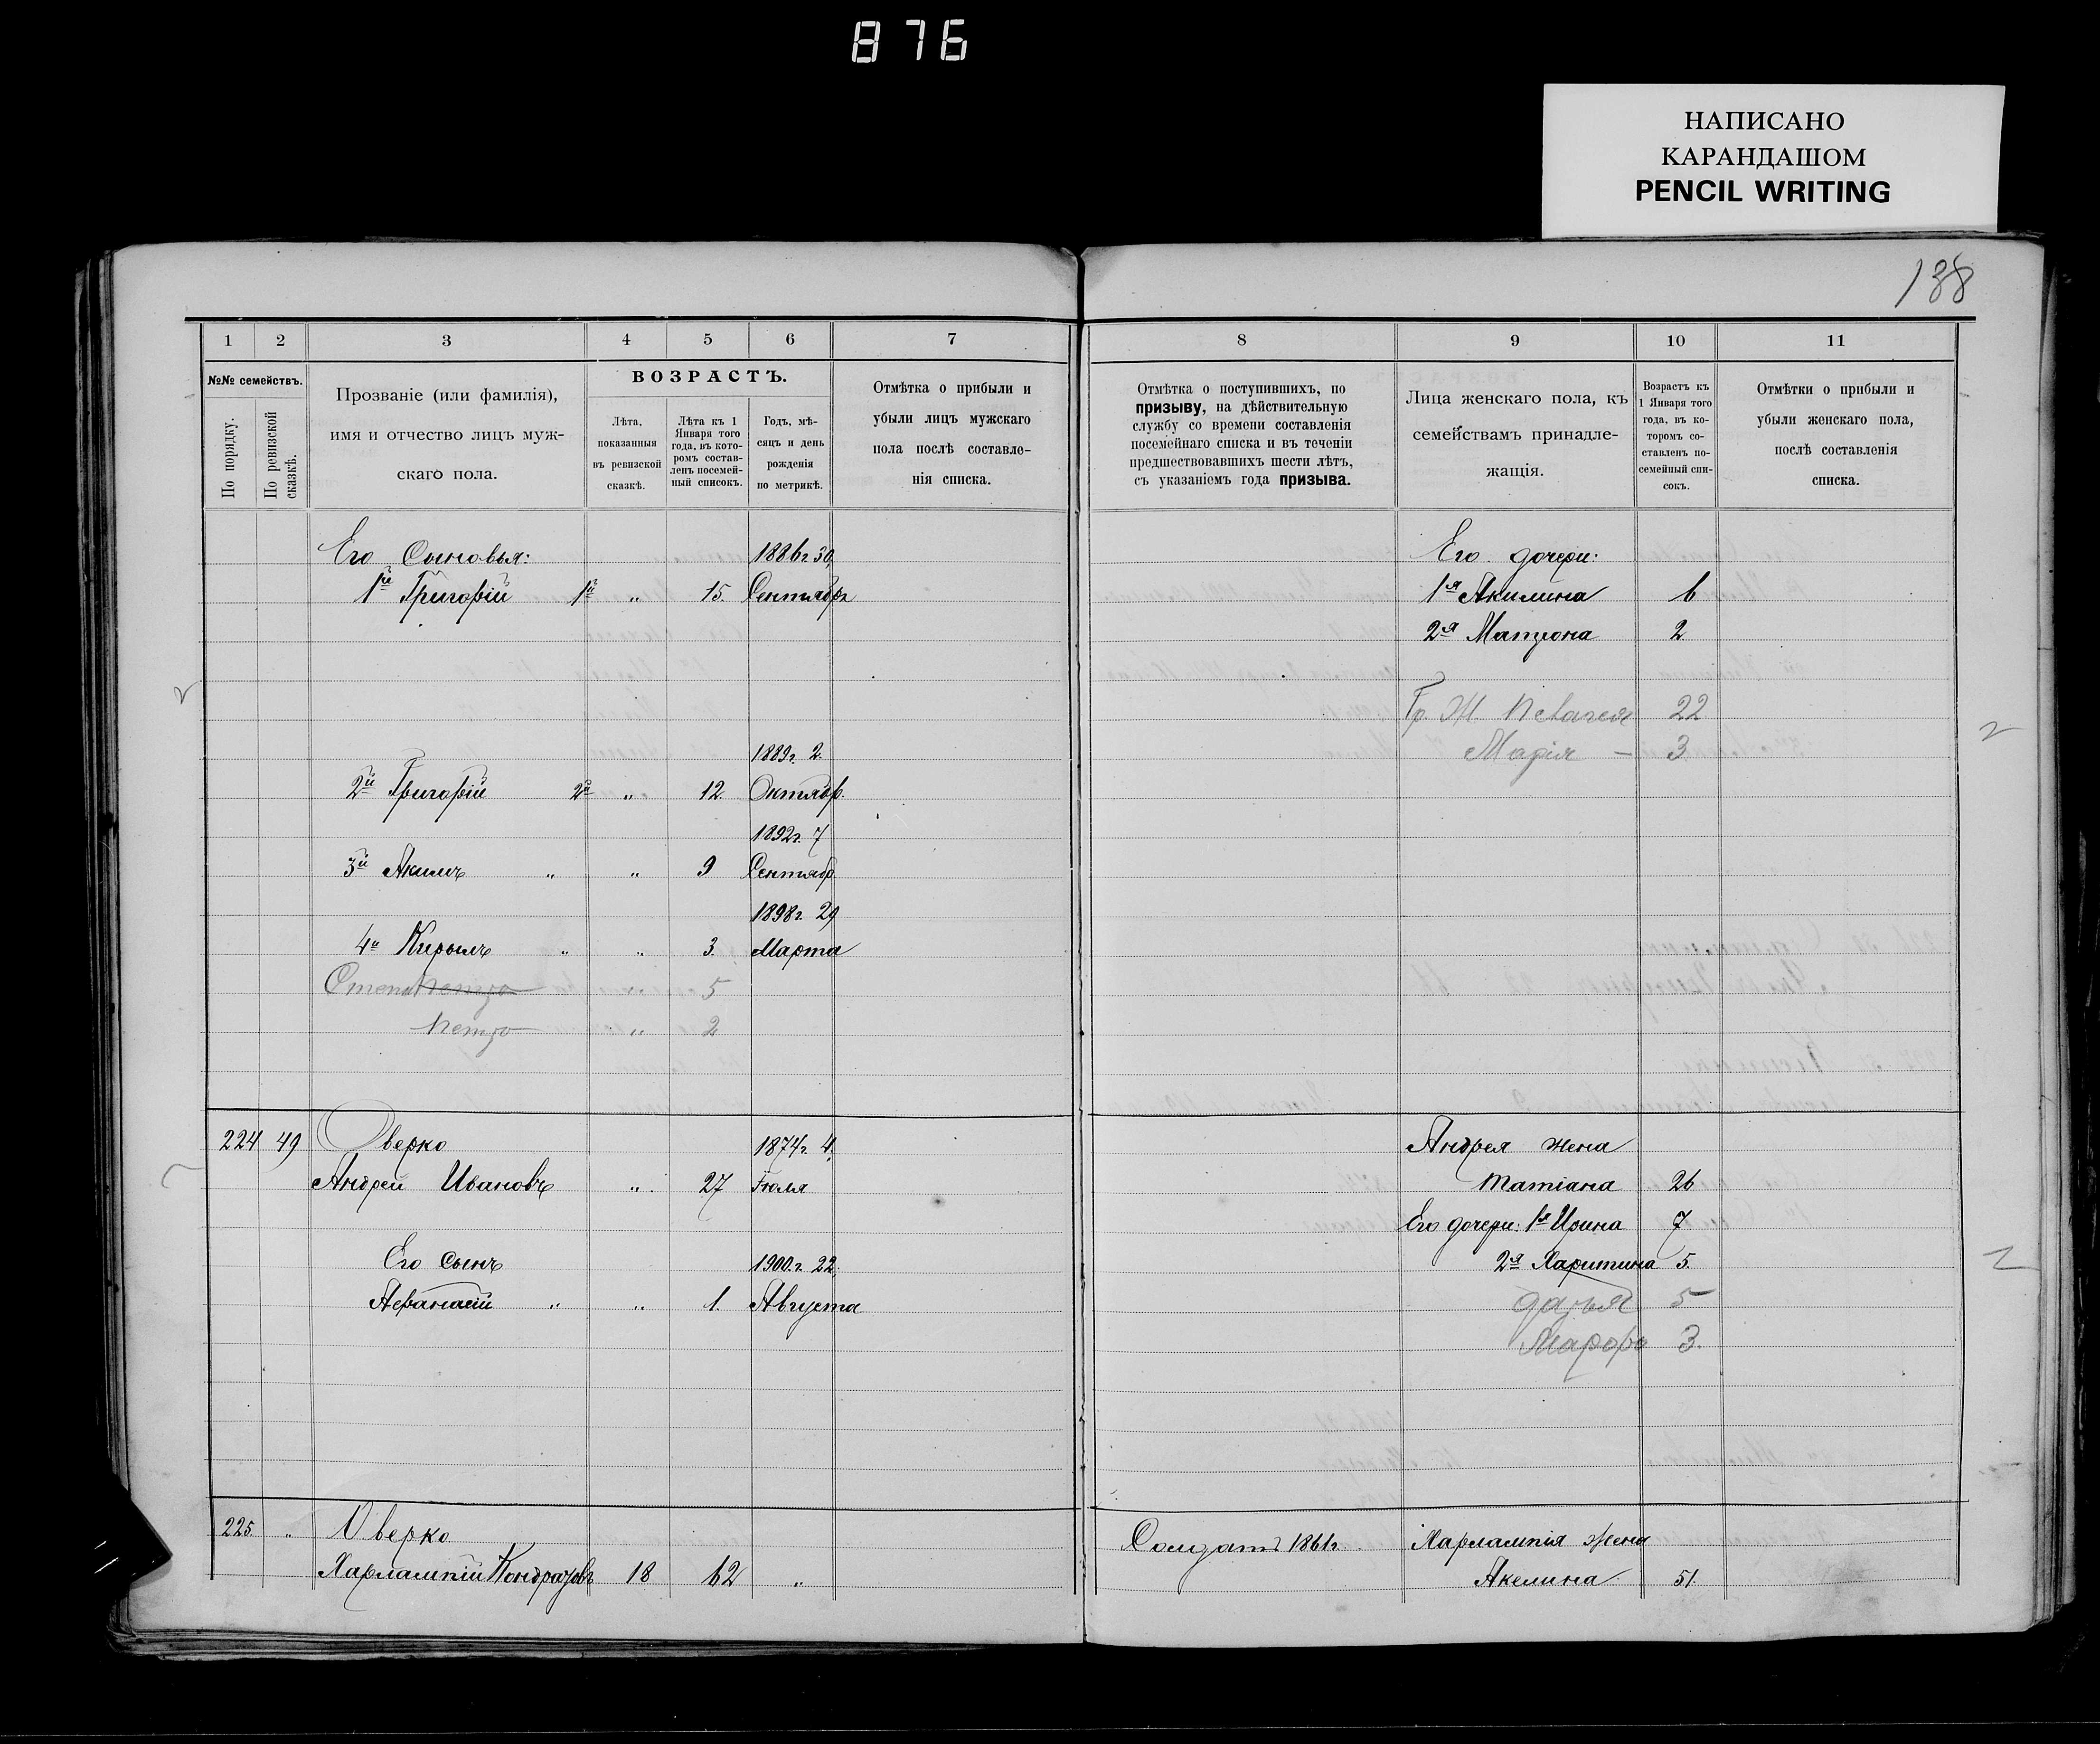 876
НАПИСАНО
КАРАНДАШОМ
PENCIL WRITING
138
1 2 3 4 5 6 7
№№ семействъ.
По порядку.
По ревизской сказкѣ.
Прозваніе (или фамилія),
имя и отчество лицъ муж-
скаго пола.
ВОЗРАСТЪ.
Лѣта,
показанныя
въ ревизской
сказкѣ.
Лѣта къ 1
Января того
года, въ кото-
ромъ состав-
ленъ посемей-
ный списокъ.
Годъ, мѣ-
сяцъ и день
рожденія
по метрикѣ.
Отмѣтка о прибыли и
убыли лицъ мужскаго
пола послѣ составле-
нія списка.
Его Сыновья: 1886г. 30
1й Григорій 1й " 15. Сентября
1889г. 2.
2й Григорій 2й " 12. Октябр.
1892г. 7
3й Акимъ " " 9 Сентябр
1898г. 29
4й Кирилъ " " 3. Марта
Степа Петро " 5
Петро " 2
224 49 Оверко 1874г. 4.
Андрей Ивановъ " 27 Іюля
Его сынъ 1900.г. 22.
Афанасій " " 1. Августа
225. " Оверко
Харлампій Кондратовъ 18 62 "
8 9 10 11
Отмѣтка о поступившихъ, по
призыву, на дѣйствительную
службу со времени составленія
посемейнаго списка и въ теченіи
предшествовавшихъ шести лѣтъ,
съ указаніемъ года призыва.
Лица женскаго пола, къ
семействамъ принадле-
жащія.
Возрастъ къ
1 Января того
года, въ ко-
торомъ со-
ставленъ по-
семейный спи-
сокъ.
Отмѣтки о прибыли и
убыли женскаго пола,
послѣ составленія
списка.
Его дочери:
1я Акилина 6
2я Матрона 2
Гр. Ж. Пелагея 22
Марія — 3
Андрея жена
Татіана 26
Его дочери: 1я Ирина 7
2я Харитина 5.
Дарья 5
Марфа 3.
Солдатъ 1861г. Харлампія жена
Акелина 51.